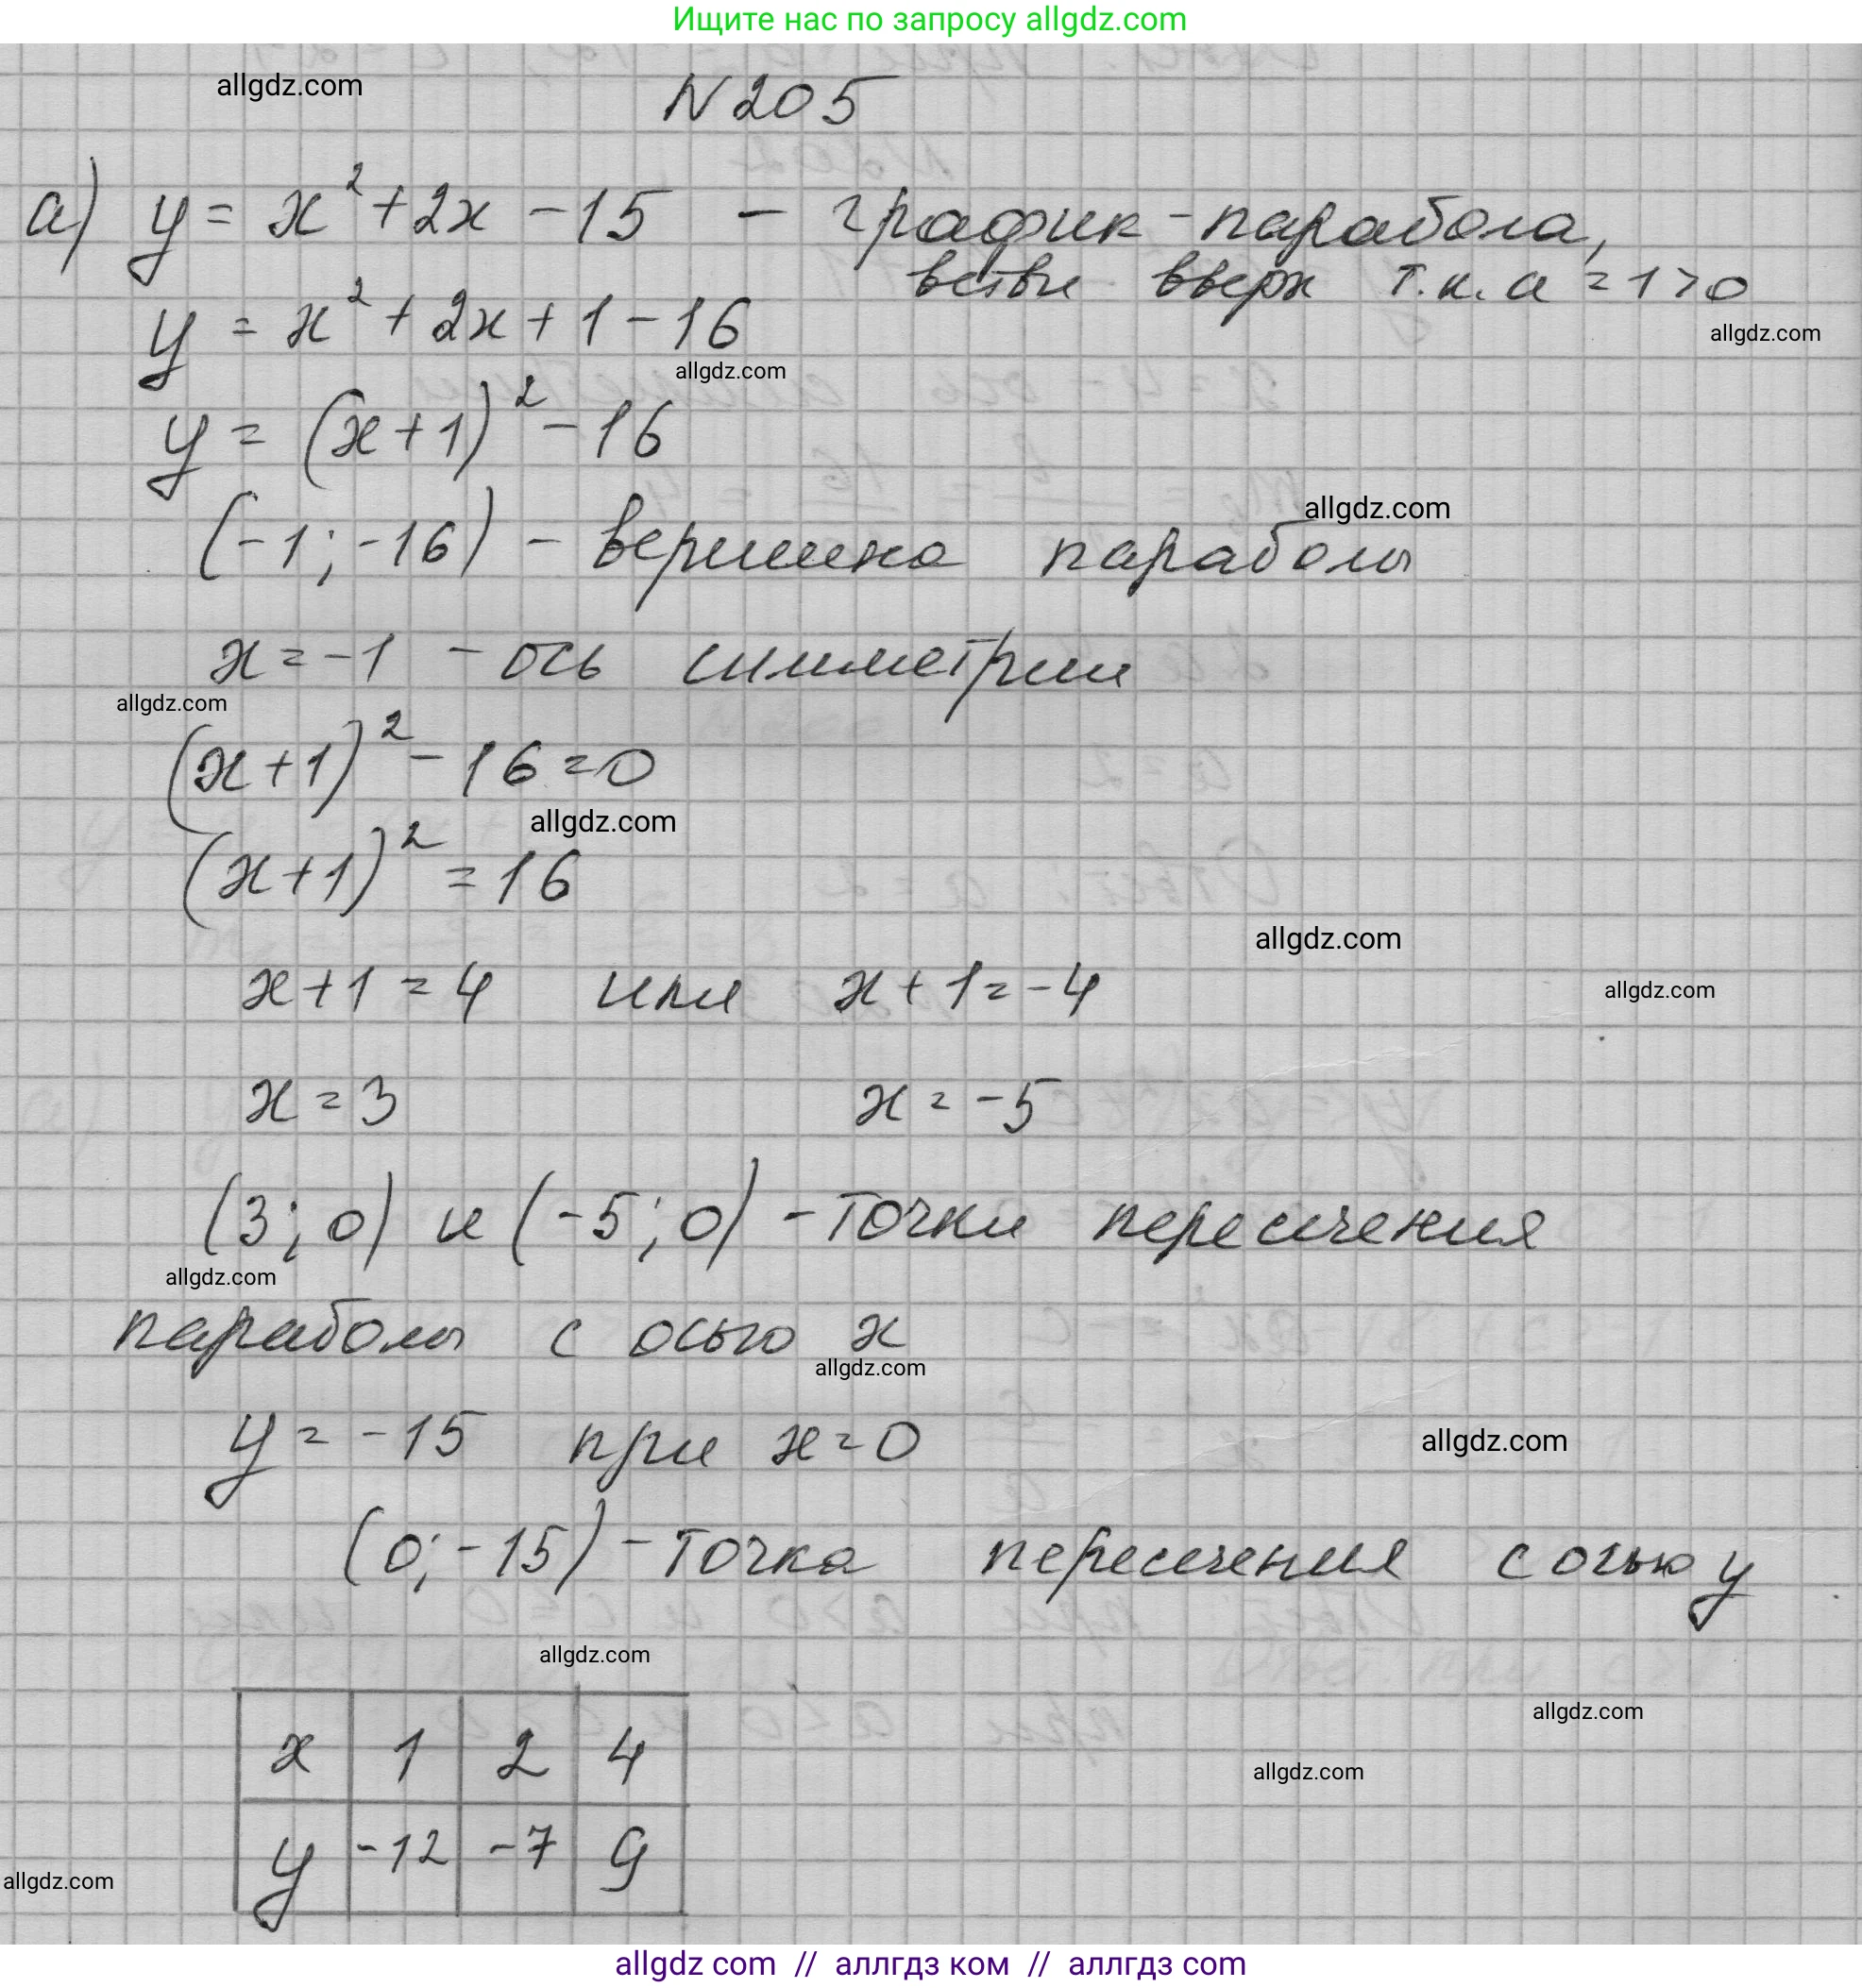 Ищите нас по запросу allgdz.com
allgdz.com
N 205
а) y = x² + 2x - 15 - график - парабола,
ветви вверх т.к. a = 1 > 0
allgdz.com
y = x² + 2x + 1 - 16
allgdz.com
y = (x+1)² - 16
allgdz.com
(-1; -16) - вершина параболы
x = -1 - ось симметрии
allgdz.com
(x+1)² - 16 = 0
allgdz.com
(x+1)² = 16
allgdz.com
x+1 = 4 или x+1 = -4
allgdz.com
x = 3 x = -5
(3; 0) и (-5; 0) - точки пересечения
allgdz.com
параболы с осью x
allgdz.com
y = -15 при x = 0
allgdz.com
(0; -15) - точка пересечения с осью y
allgdz.com
allgdz.com
x 1 2 4
allgdz.com
y -12 -7 9
allgdz.com
allgdz com // аллгдз ком // аллгдз com